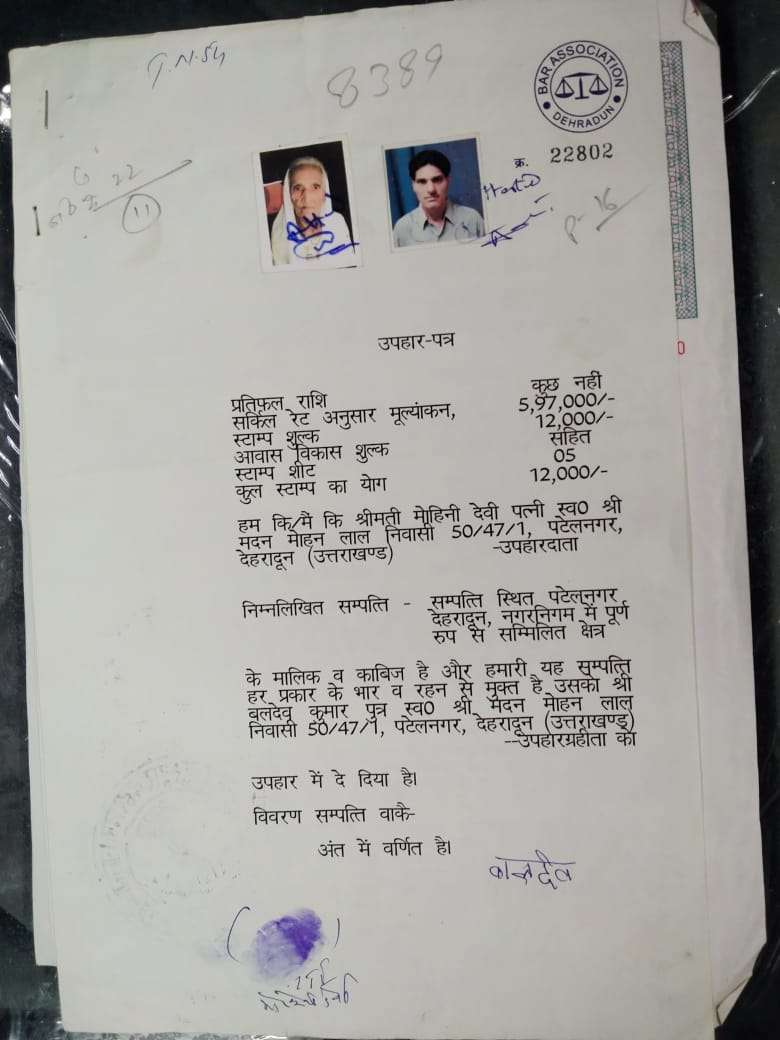 8389
BAR ASSOCIATION
DEHRADUN
क्र. 22802
P-16
11
उपहार-पत्र
प्रतिफ़ल राशि कुछ नहीं
सर्किल रेट अनुसार मूल्यांकन, 5,97,000/-
स्टाम्प शुल्क 12,000/-
आवास विकास शुल्क सहित
स्टाम्प शीट 05
कुल स्टाम्प का योग 12,000/-
हम कि/मैं कि श्रीमती मोहिनी देवी पत्नी स्व0 श्री
मदन मोहन लाल निवासी 50/47/1, पटेलनगर,
देहरादून (उत्तराखण्ड) -उपहारदाता
निम्नलिखित सम्पत्ति - सम्पत्ति स्थित पटेलनगर
देहरादून, नगरनिगम में पूर्ण
रुप से सम्मिलित क्षेत्र
के मालिक व काबिज है और हमारी यह सम्पत्ति
हर प्रकार के भार व रहन से मुक्त है उसको श्री
बलदेव कुमार पुत्र स्व0 श्री मदन मोहन लाल
निवासी 50/47/1, पटेलनगर, देहरादून (उत्तराखण्ड)
--उपहारग्रहीता को
उपहार में दे दिया है।
विवरण सम्पत्ति वाकै-
अंत में वर्णित है।